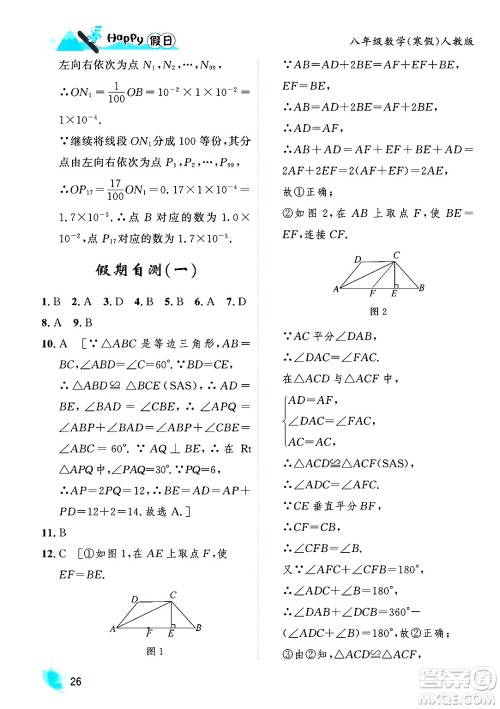 Happy 假日
八年级数学(寒假)人教版
左向右依次为 N₁,N₂,…,N₉₉,
∴ON₁=1/100 OB=10⁻²×1×10⁻²
=1×10⁻⁴.
∵继续将线段 ON₁ 分成 100 等份,其分
点由左向右依次为 P₁,P₂,…,P₉₉,
∴OP₁₇=17/100 ON₁=0.17×1×10⁻⁴=
1.7×10⁻⁵.∴点 B 对应的数为 1.0×
10⁻²,点 P₁₇ 对应的数为 1.7×10⁻⁵.
假期自测(一)
1.B 2.A 3.D 4.A 5.B 6.A 7.D
8.A 9.B
10.A [∵△ABC 是等边三角形,AB=
BC,∴∠ABD=∠C=60°.
∴△ABD≌△BCE(SAS),
∴∠BAD=∠CBE,∴∠APQ=
∠ABP+∠BAD=∠ABP+
∠CBE=60°.∵AQ⊥BE,∴在 Rt
△APQ 中,∠PAQ=30°=6,
∴AP=2PQ=12,∴AD=AP+PD=
12+2=14.]
11.B
12.C [①如图 1,在 AE 上取点 F,使
EF=BE.
D C
A F E B
图 1
26
∵AB=AD+2BE=AF+EF+BE,
∴AD=AF,
∴AB+AD=AF+EF+BE+AD=
2AF+2EF=2AE,
故①正确;
②如图 2,在 AB 上取点 F,使 BE=
EF,连接 CF.
D C
A F E B
图 2
∵AC 平分∠DAB,
∴∠DAC=∠FAC.
在△ACD 与△ACF 中,
AD=AF,
∠DAC=∠FAC,
AC=AC,
∴△ACD≌△ACF(SAS),
∴∠ADC=∠AFC.
∵CE 垂直平分 BF,
∴CF=CB,
∴∠CFB=∠B.
又∵∠AFC+∠CFB=180°,
∴∠ADC+∠B=180°,
∴∠DAB+∠DCB=360°−
(∠ADC+∠B)=180°,故②正确;
③由②知,△ACD≌△ACF,